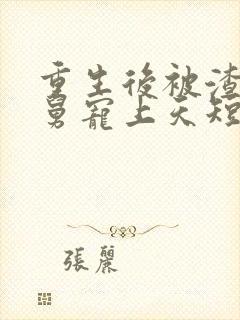 重生後被渣
舅寵上天短
張麗